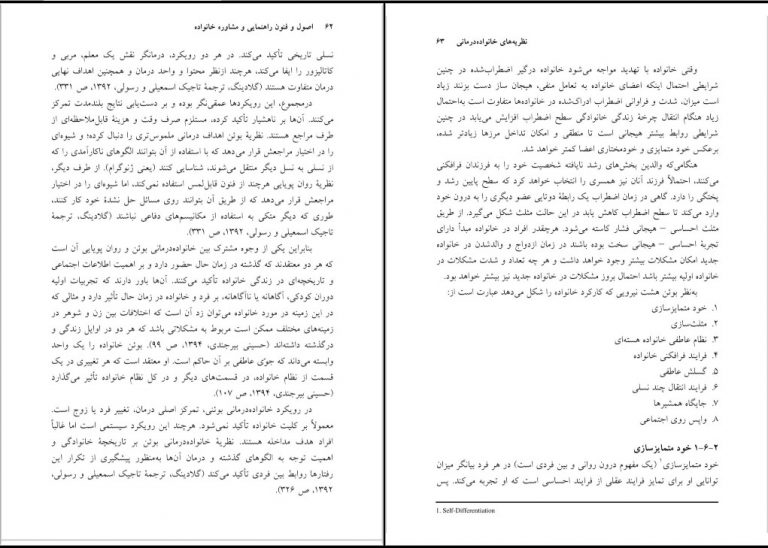 ۶۲ اصول و فنون راهنمایی و مشاوره خانواده
نسلی تاریخی تأکید می‌کند. در هر دو رویکرد، درمانگر نقش یک معلم، مربی و
کاتالیزور را ایفا می‌کند، هرچند ازنظر محتوا و واحد درمان و همچنین اهداف نهایی
درمان متفاوت هستند (گلادینگ، ترجمهٔ تاجیک اسمعیلی و رسولی، ۱۳۹۲، ص ۳۳۱).
درمجموع، این رویکردها عمقی‌نگر بوده و بر دست‌یابی نتایج بلندمدت تمرکز
می‌کنند. آن‌ها بر ناهشیار تأکید کرده، مستلزم صرف وقت و هزینهٔ قابل‌ملاحظه‌ای از
طرف مراجع هستند. نظریهٔ بوئن اهداف درمانی ملموس‌تری را دنبال کرده؛ و شیوه‌ای
را در اختیار مراجعش قرار می‌دهد که با استفاده از آن بتوانند الگوهای ناکارآمدی را که
از نسلی به نسل دیگر منتقل می‌شوند، شناسایی کنند (یعنی ژنوگرام). از طرف دیگر،
نظریهٔ روان پویایی هرچند از فنون قابل‌لمس استفاده نمی‌کند، اما شیوه‌ای را در اختیار
مراجعش قرار می‌دهد که از طریق آن بتوانند روی مسائل حل نشدهٔ خود کار کنند،
طوری که دیگر متکی به استفاده از مکانیسم‌های دفاعی نباشند (گلادینگ، ترجمهٔ
تاجیک اسمعیلی و رسولی، ۱۳۹۲، ص ۳۳۱).
بنابراین یکی از وجوه مشترک بین خانواده‌درمانی بوئن و روان پویایی آن است
که هر دو معتقدند که گذشته در زمان حال حضور دارد و بر اهمیت اطلاعات اجتماعی
و تاریخچه‌ای در زندگی خانواده تأکید می‌کنند. آن‌ها باور دارند که تجربیات اولیه
دوران کودکی، آگاهانه یا ناآگاهانه، بر فرد و خانواده در زمان حال تأثیر دارد و مثالی که
در این زمینه در مورد خانواده می‌توان زد آن است که اختلافات بین زن و شوهر در
زمینه‌های مختلف ممکن است مربوط به مشکلاتی باشد که هر دو در اوایل زندگی و
درگذشته داشته‌اند (حسینی بیرجندی، ۱۳۹۴، ص ۹۹). بوئن خانواده را یک واحد
وابسته می‌داند که جوّی عاطفی بر آن حاکم است. او معتقد است که هر تغییری در یک
قسمت از نظام خانواده، در قسمت‌های دیگر و در کل نظام خانواده تأثیر می‌گذارد
(حسینی بیرجندی، ۱۳۹۴، ص ۱۰۷).
در رویکرد خانواده‌درمانی بوئنی، تمرکز اصلی درمان، تغییر فرد یا زوج است.
معمولاً بر کلیت خانواده تأکید نمی‌شود. هرچند این رویکرد سیستمی است اما غالباً
افراد هدف مداخله هستند. نظریهٔ خانواده‌درمانی بوئن بر تاریخچهٔ خانوادگی و
اهمیت توجه به الگوهای گذشته و درمان آن‌ها به‌منظور پیشگیری از تکرار این
رفتارها روابط بین فردی تأکید می‌کند (گلادینگ، ترجمهٔ تاجیک اسمعیلی و رسولی،
۱۳۹۲، ص ۳۲۶).
نظریه‌های خانواده‌درمانی ۶۳
وقتی خانواده با تهدید مواجه می‌شود خانواده درگیر اضطراب‌شده در چنین
شرایطی احتمال اینکه اعضای خانواده به تعامل منفی، هیجان ساز دست بزنند زیاد
است میزان، شدت و فراوانی اضطراب ادراک‌شده در خانواده‌ها متفاوت است به‌احتمال
زیاد هنگام انتقال چرخهٔ زندگی خانوادگی سطح اضطراب افزایش می‌یابد در چنین
شرایطی روابط بیشتر هیجانی است تا منطقی و امکان تداخل مرزها زیادتر شده،
برعکس خود متمایزی و خودمختاری اعضا کمتر خواهد شد.
هنگامی‌که والدین بخش‌های رشد نایافته شخصیت خود را به فرزندان فرافکنی
می‌کنند، احتمالاً فرزند آنان نیز همسری را انتخاب خواهد کرد که سطح پایین رشد و
پختگی را دارد. گاهی در زمان اضطراب یک رابطهٔ دوتایی عضو دیگری را به درون خود
وارد می‌کند تا سطح اضطراب کاهش یابد در این حالت مثلث شکل می‌گیرد. از طریق
مثلث احساسی – هیجانی فشار کاسته می‌شود. هرچقدر افراد در خانواده مبدأ دارای
تجربهٔ احساسی – هیجانی سخت بوده باشند در زمان ازدواج و والدشدن در خانواده
جدید امکان مشکلات بیشتر وجود خواهد داشت و هر چه تعداد و شدت مشکلات در
خانواده اولیه بیشتر باشد احتمال بروز مشکلات در خانواده جدید نیز بیشتر خواهد بود.
به‌نظر بوئن هشت نیرویی که کارکرد خانواده را شکل می‌دهد عبارت است از:
۱. خود متمایزسازی
۲. مثلث‌سازی
۳. نظام عاطفی خانواده هسته‌ای
۴. فرایند فرافکنی خانواده
۵. گسلش عاطفی
۶. فرایند انتقال چند نسلی
۷. جایگاه همشیرها
۸. واپس روی اجتماعی
۲-۶-۱ خود متمایزسازی
خود متمایزسازی۱ (یک مفهوم درون روانی و بین فردی است) در هر فرد بیانگر میزان
توانایی او برای تمایز فرایند عقلی از فرایند احساسی است که او تجربه می‌کند. پس
1. Self-Differentiation